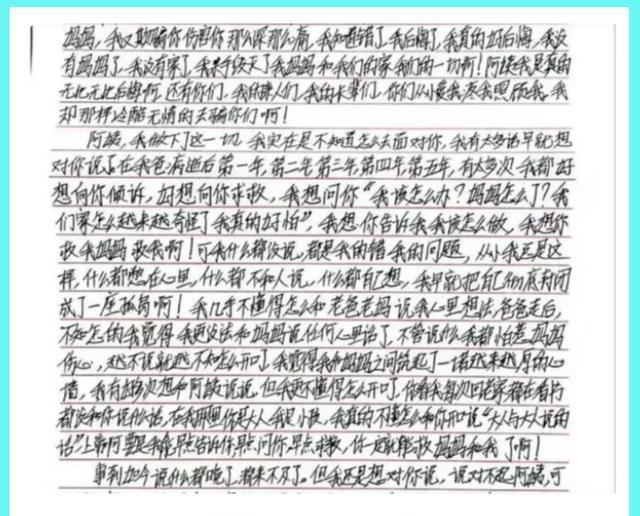 妈妈，我又欺骗你伤害你那么深那么痛，我知道错了，我后悔了，我真的好后悔，我没
有妈妈了，我没有家了，我亲手毁灭了我妈妈和我们的家我们的一切啊！阿姨我是真的
无比无比后悔啊，还有你们，我的亲人们，我的长辈们，你们从小爱我疼我照顾我，我
却那样冷酷无情的去骗你们啊！
阿姨，我做下了这一切，我实在是不知道怎么去面对你，我有太多话早就想
对你说了，在我爸病逝后第一年，第二年，第三年，第四年，第五年，有太多次我都好
想向你倾诉，好想向你求救，我想问你“我该怎么办？妈妈怎么了？我
们家怎么越来越奇怪了我真的好怕”，我想你告诉我我该怎么做，我想你
救我妈妈救我啊！可我什么都没说，都是我的错我的问题，从小我总是这
样，什么都憋在心里，什么都不和人说，什么都自己想，我早就把自己彻底封闭
成了一座孤岛啊！我几乎不懂得怎么和老爸老妈说我心里想法，爸爸走后，
不知怎的我觉得我更没法和妈妈说任何心里话了，不管说什么我都怕惹妈妈
伤心，越不说就越不知怎么开口了，我觉得我和妈妈之间筑起了一堵越来越厚的心
墙，我有好多次想和阿姨说说，但我更不懂得怎么开口了，你看我每次回老家都在看书
都没和你说什么话，在我那里你是大人我是小孩，我真的不懂怎么和你开口说“大人与大人说的
话”上帝啊要是我能早点告诉你，早点问你，早点求救，你一定就能救妈妈和我了啊！
事到如今说什么都晚了，都来不及了。但我还是想对你说，说对不起阿姨，可